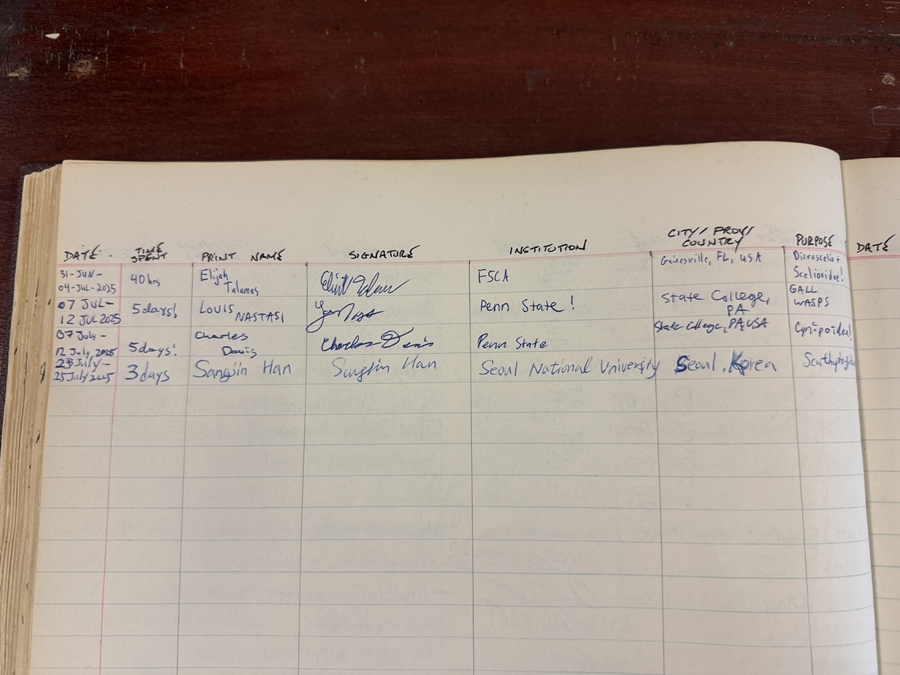 DATE TIME SPENT PRINT NAME SIGNATURE INSTITUTION CITY/PROV/COUNTRY PURPOSE DATE
31-JUN-04-JUL-2025 40 hrs Elijah Talamas FSCA Gainesville, FL, USA Scelionidae!
07 JUL-12 JUL 2025 5 days! Louis NASTASI Penn State! State College, PA GALL WASPS
07 July-12 July, 2025 5 days! Charles Davis Charles Davis Penn State State College, PA USA Cynipoidea!
23 July-25 July 2025 3 days Sangjin Han Sangjin Han Seoul National University Seoul, Korea